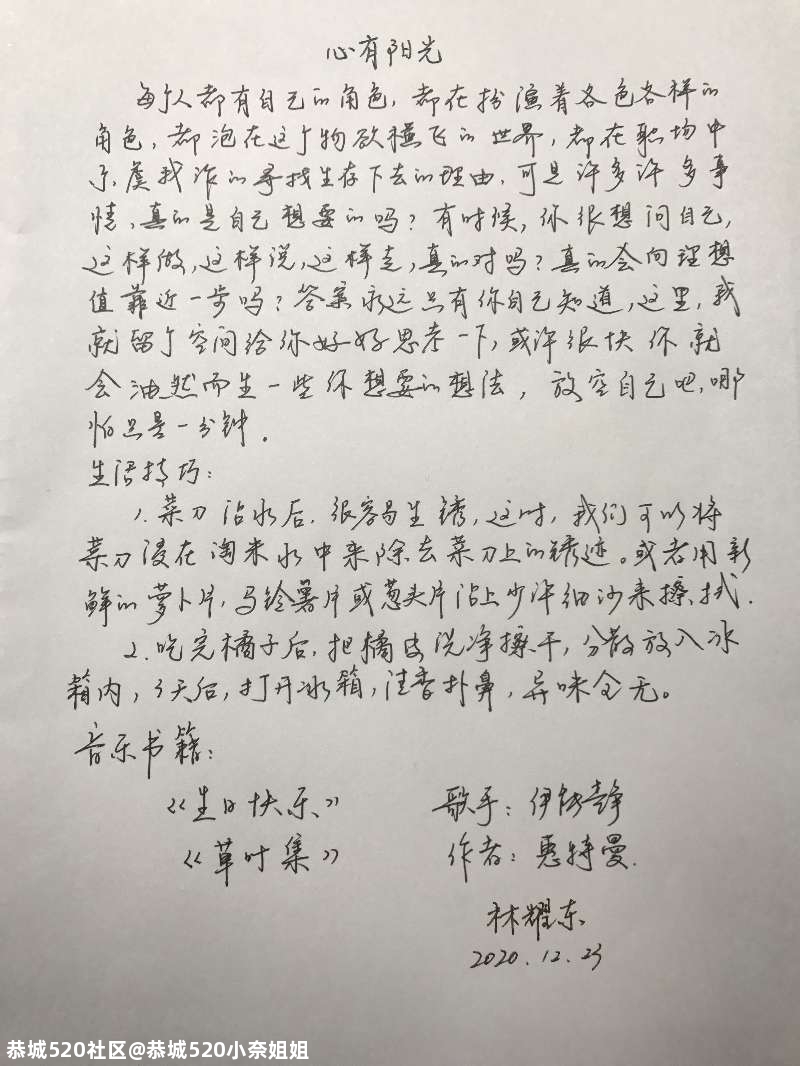 心有阳光
每个人都有自己的角色，都在扮演着各色各样的
角色，都泡在这个物欲横飞的世界，都在职场中
尔虞我诈的寻找生存下去的理由，可是许多许多事
情，真的是自己想要的吗？有时候，你很想问自己，
这样做，这样说，这样走，真的对吗？真的会向理想
值靠近一步吗？答案永远只有你自己知道，这里，我
就留个空间给你好好思考一下，或许很快你就
会油然而生一些你想要的想法，放空自己吧，哪
怕只是一分钟。
生活技巧：
1.菜刀沾水后，很容易生锈，这时，我们可以将
菜刀浸在淘米水中来除去菜刀上的锈迹。或者用新
鲜的萝卜片，马铃薯片或葱头片沾上少许细沙来擦拭.
2.吃完橘子后，把橘皮洗净擦干，分散放入冰
箱内，3天后，打开冰箱，清香扑鼻，异味全无。
音乐书籍：
《生日快乐》 歌手：伊能静
《草叶集》 作者：惠特曼.
林耀东
2020.12.23
恭城520社区@恭城520小奈姐姐